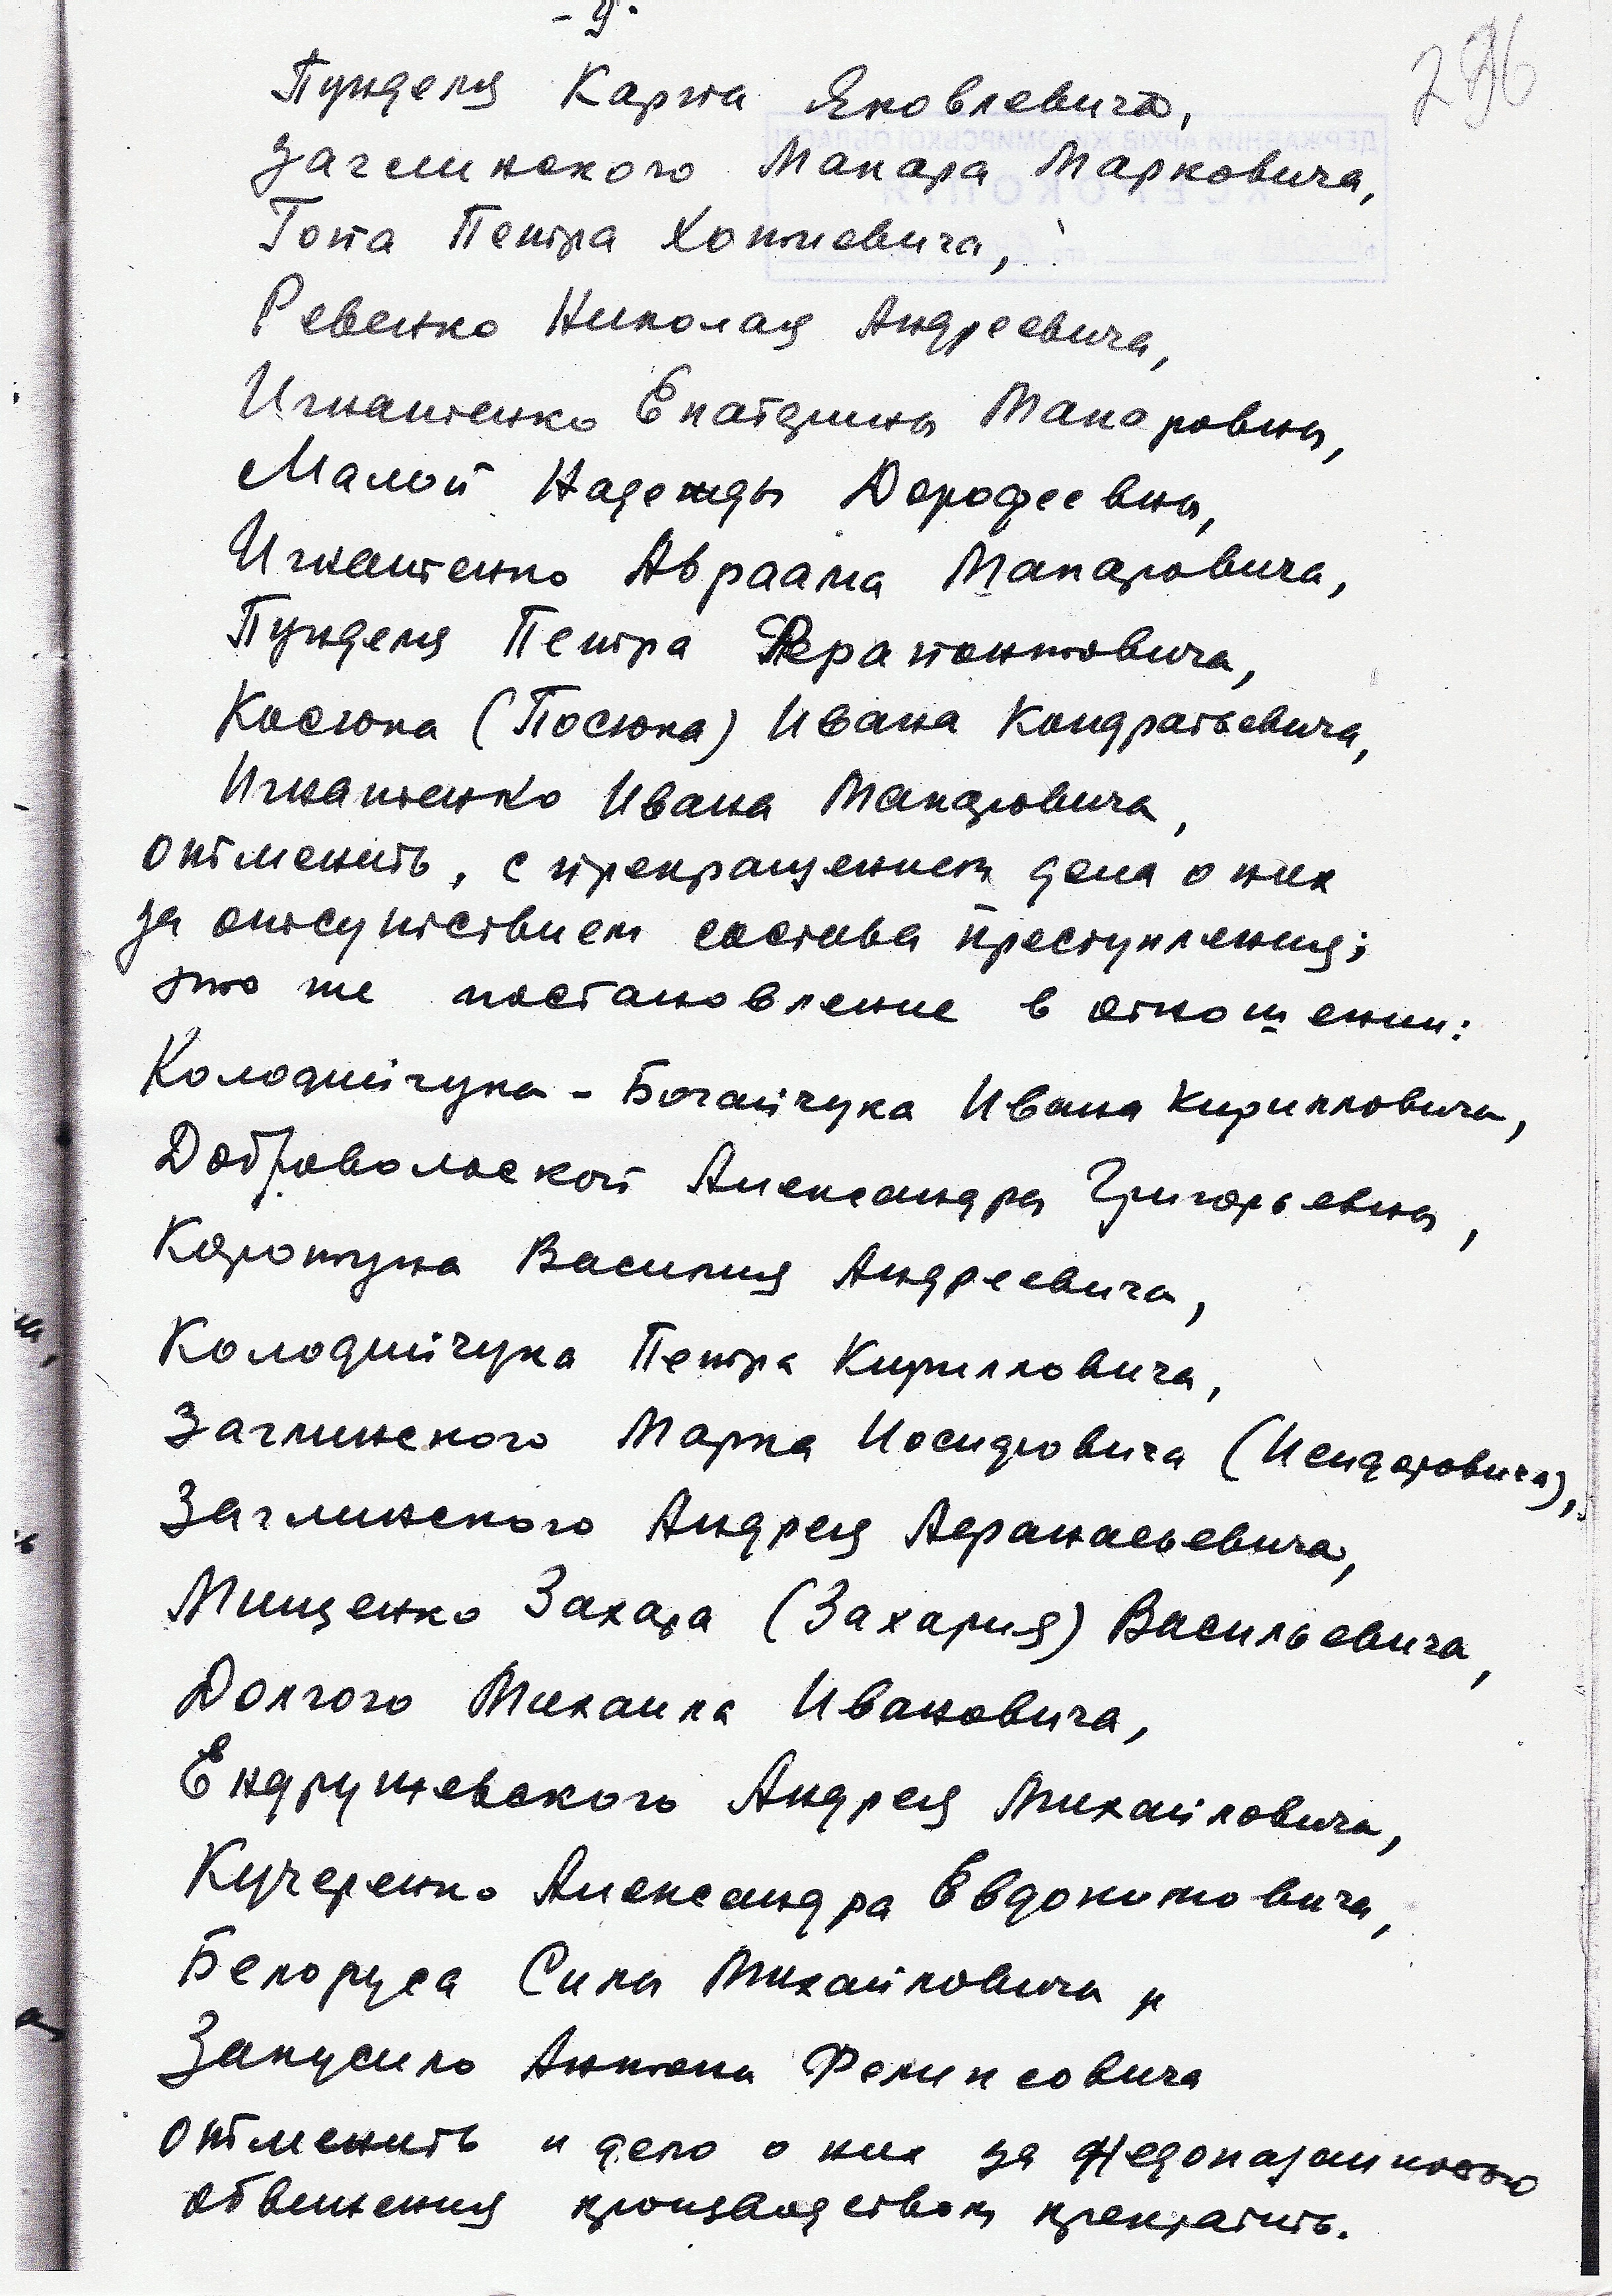 - 9 -
296
Пунделя Карпа Яковлевича,
Заглинского Макара Марковича,
Гопа Петра Хотиевича,
Ревенко Николая Андреевича,
Игнатенко Екатерины Макаровны,
Малой Надежды Дорофеевны,
Игнатенко Авраама Макаровича,
Пунделя Петра Ферапонтовича,
Косюка (Посюка) Ивана Кондратьевича,
Игнатенко Ивана Макаровича,
отменить, с прекращением дела о них
за отсутствием состава преступления;
это же постановление в отношении:
Колодийчука - Богайчука Ивана Кирилловича,
Добровольской Александры Григорьевны,
Коротуна Василия Андреевича,
Колодийчука Петра Кирилловича,
Заглинского Марка Иосидовича (Исидоровича),
Заглинского Андрея Афанасьевича,
Мищенко Захара (Захария) Васильевича,
Долгого Михаила Ивановича,
Ендрушевского Андрея Михайловича,
Кучеренко Александра Евдокимовича,
Белоруса Силы Михайловича и
Закусило Антона Феликсовича
отменить и дело о них за недоказанностью
обвинения производством прекратить.